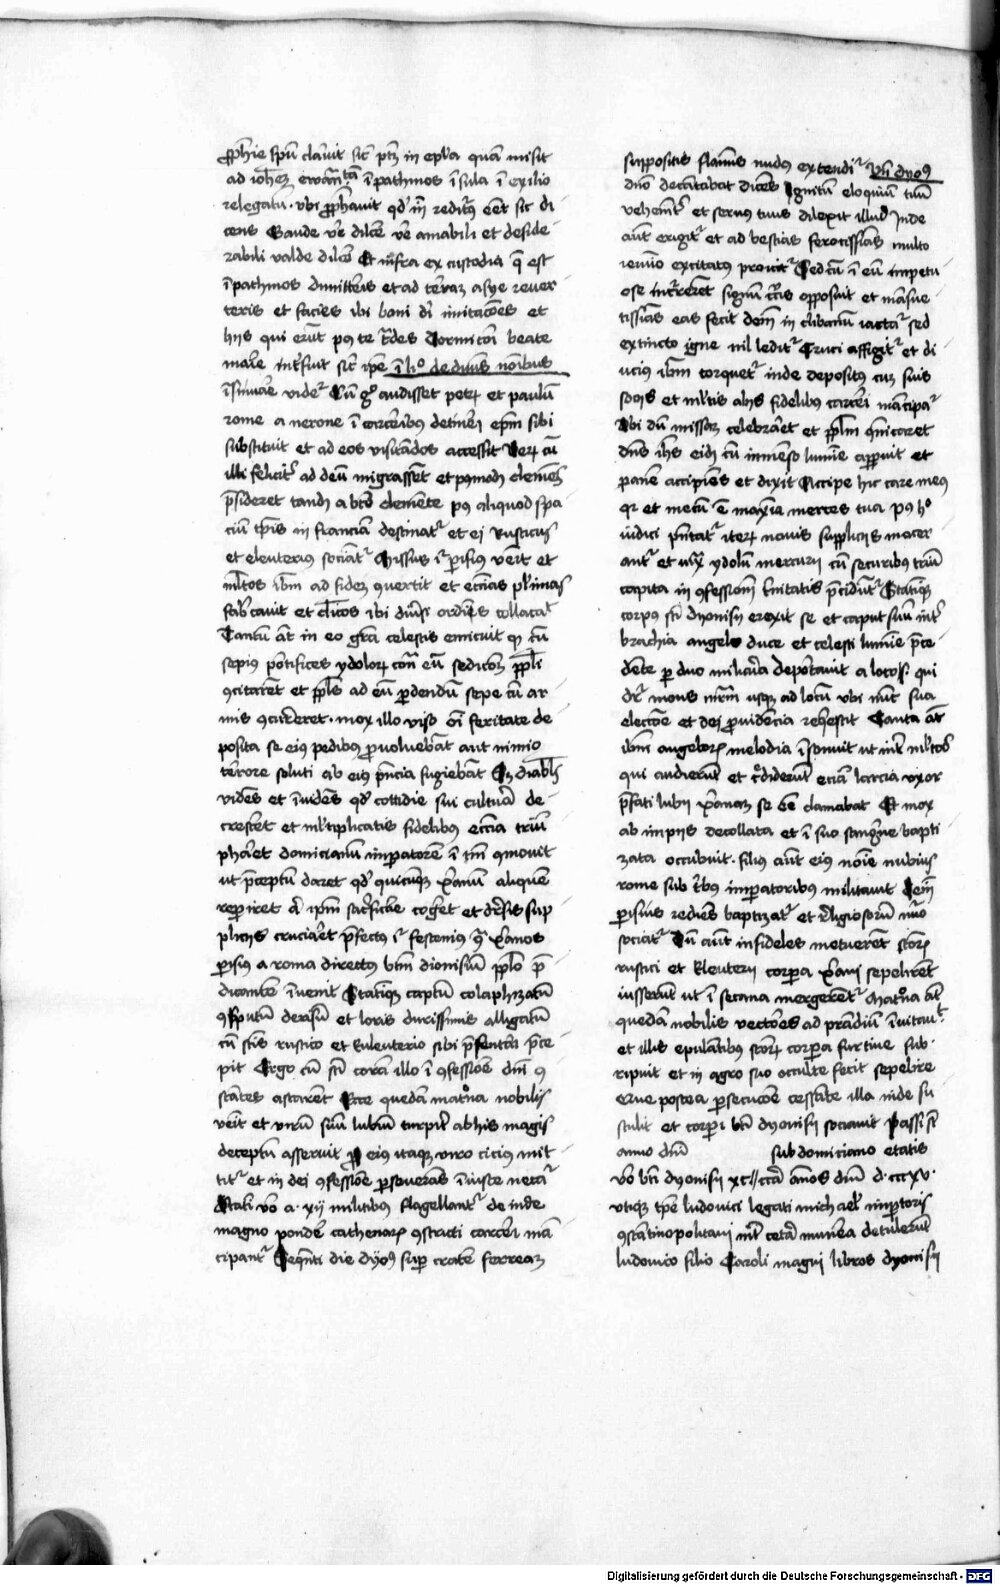 prophie spu claruit sic ptz in epla quam misit
ad iohem ewan tam i pathmos i sula i exilio
relegatu. vbi prophauit qd in reditus eet sic di
cens Gaude ve dilce ve amabili et deside
rabili valde dilce Et infra ex custodia q est
i pathmos dimitteris et ad terram asye reuer
teris et facies ibi boni di imitacoes et
hiis qui erut post te trades Dormitoi beate
marie interfuit sic ipe i lio de diuis noibus
isinuare videt Cu go audisset petrum et paulum
rome a nerone i carceribus detineri epm sibi
substituit et ad eos visitados accessit Verum cu
illi feliciter ad deu migrassent et postmodum clemens
presideret tandem a bto clemente post aliquod spa
cium tpis in franciam destinat et ei rusticus
et eleuterius sociat Missus igitur parisius veit et
multos ibm ad fidem conuertit et eccias plimas
fabricauit et clicos ibi diuersi ordinis collocat
Tantum at in eo gra celestis emicuit q cu
sepius pontifices ydolorum contra eu sedicom ppli
concitarent et ppls ad eu perdendum sepe cu ar
mis concurreret. mox illo viso oi feritate de
posita se eius pedibus prouoluebant aut nimio
terrore soluti ab eius presencia fugiebant Sed diabls
videns et inuidens qd cottidie sui cultura de
cresceret et multiplicatis fidelibus eccia trium
pharet domicianum imperatorem i tm commouit
ut preceptum daret qd quicumque xpianum aliquem
reperiret ad ipm sacrificare cogeret et diuersis sup
pliciis cruciaret prefectus igitur festenius contra xpianos
parisius a roma directus btm dionisium pplo pre
dicante inuenit Statimque captum colaphizatum
consputum derisum et loris durissimis alligatum
cu scis rustico et Euleuterio sibi presentari prece
pit Ergo cu sci coram illo i confessione dei con
stantes astarent Ecce quedam matrona nobilis
venit et virum suum lubium turpiter ab his magis
deceptum asseruit Pro eius itaque viro cicius mit
titur et in dei confessione perseuerans iniuste necatur
Sancti vero a. xii militibus flagellantur deinde
magno pondere cathenarum constricti carceri man
cipantur Sequenti die dyonisius super cratem ferream
suppositis flammis nudus extenditur vbi dyonisius
domino decantabat dicens Ignitum eloquium tuum
vehementer et seruus tuus dilexit illud Inde
autem erigitur et ad bestias ferocissimas multo
ieiunio excitatas proicitur Sed cum i eum impetu
ose incurrerent signum crucis opposuit et mansue
tissimas eas fecit deinde in clibanum iactatur sed
extincto igne nil leditur Cruci affigitur et di
ucius ibm torquetur inde depositus cum suis
sociis et multis aliis fidelibus carceri mancipatur
Vbi dum missam celebraret et pplm comunicaret
dns ihs eidem cum immenso lumine apparuit et
panem accipiens et dixit Accipe hic care meus
quia et mecum e maxima merces tua post hoc
iudici presentatur iterum nouis suppliciis macer
antur et iuxta ydolum mercurii cum securibus trium
capita in confessione trinitatis preciduntur Statimque
corpus sci dyonisii erexit se et caput suum inter
brachia angelo duce et celesti lumine prece
dente per duo miliaria deportauit a loco qui
dicitur mons martirum usque ad locum vbi nunc sua
electione et dei prouidencia requiescit Tanta autem
ibm angelorum melodia insonuit ut inter multos
qui audierunt et crediderunt eciam larcia vxor
prefati lubii xpianam se esse clamabat Et mox
ab impiis decollata et i suo sanguine bapti
zata occubuit. filius autem eius nomine uubius
rome sub tribus imperatoribus militauit Demum
parisius rediens baptizatur et religiosorum numero
sociatur Cum autem infideles metuerent sanctorum
rustici et Eleuterii corpora xpiani sepelirent
iusserunt ut i secana mergerentur Matrona autem
quedam nobilis vectores ad prandium inuitauit
et illis epulantibus sanctorum corpora furtiue sub-
ripuit et in agro suo occulte fecit sepelire
Que postea persecucione cessante illa inde su
stulit et corpori bti dyonisii sociauit Passi sunt
anno dni sub domiciano etatis
vero bti dyonisii xc circa annos dni d.cccxv.
vtique tpe ludouici legati michaelis imperatoris
constantinopolitani inter cetera munera detulerunt
ludouico filio Caroli magni libros dyonisii
Digitalisierung gefördert durch die Deutsche Forschungsgemeinschaft - DFG